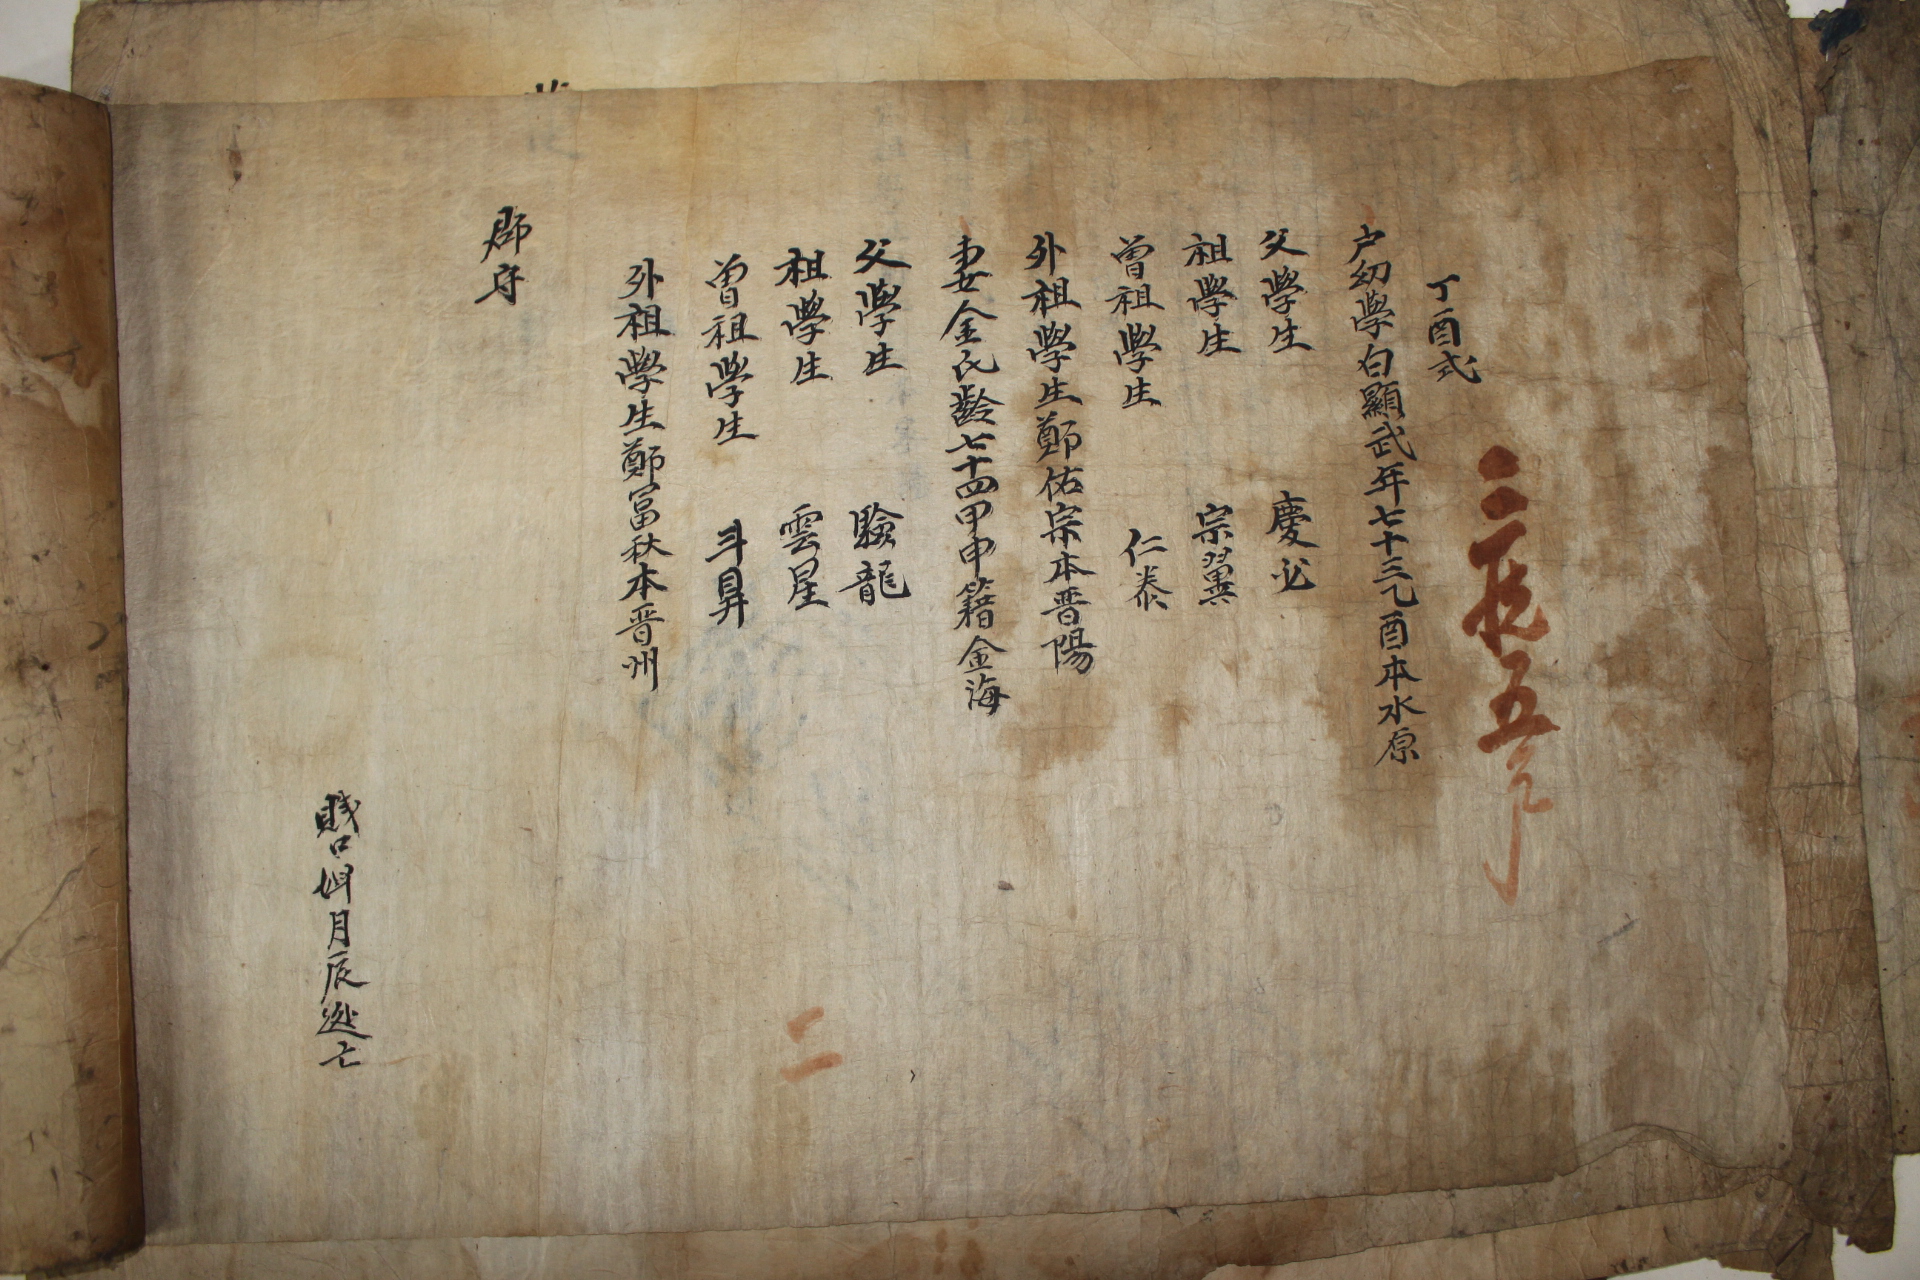 丁酉式
戶幼學白顯武年七十三乙酉本水原
父學生 慶必
祖學生 宗翼
曾祖學生 仁泰
外祖學生鄭佑宗本晋陽
妻金氏齡七十四甲申籍金海
父學生 驗龍
祖學生 雲星
曾祖學生 斗昇
外祖學生鄭冨秋本晋州
郡守
賤口婢月辰逃亡
五
二